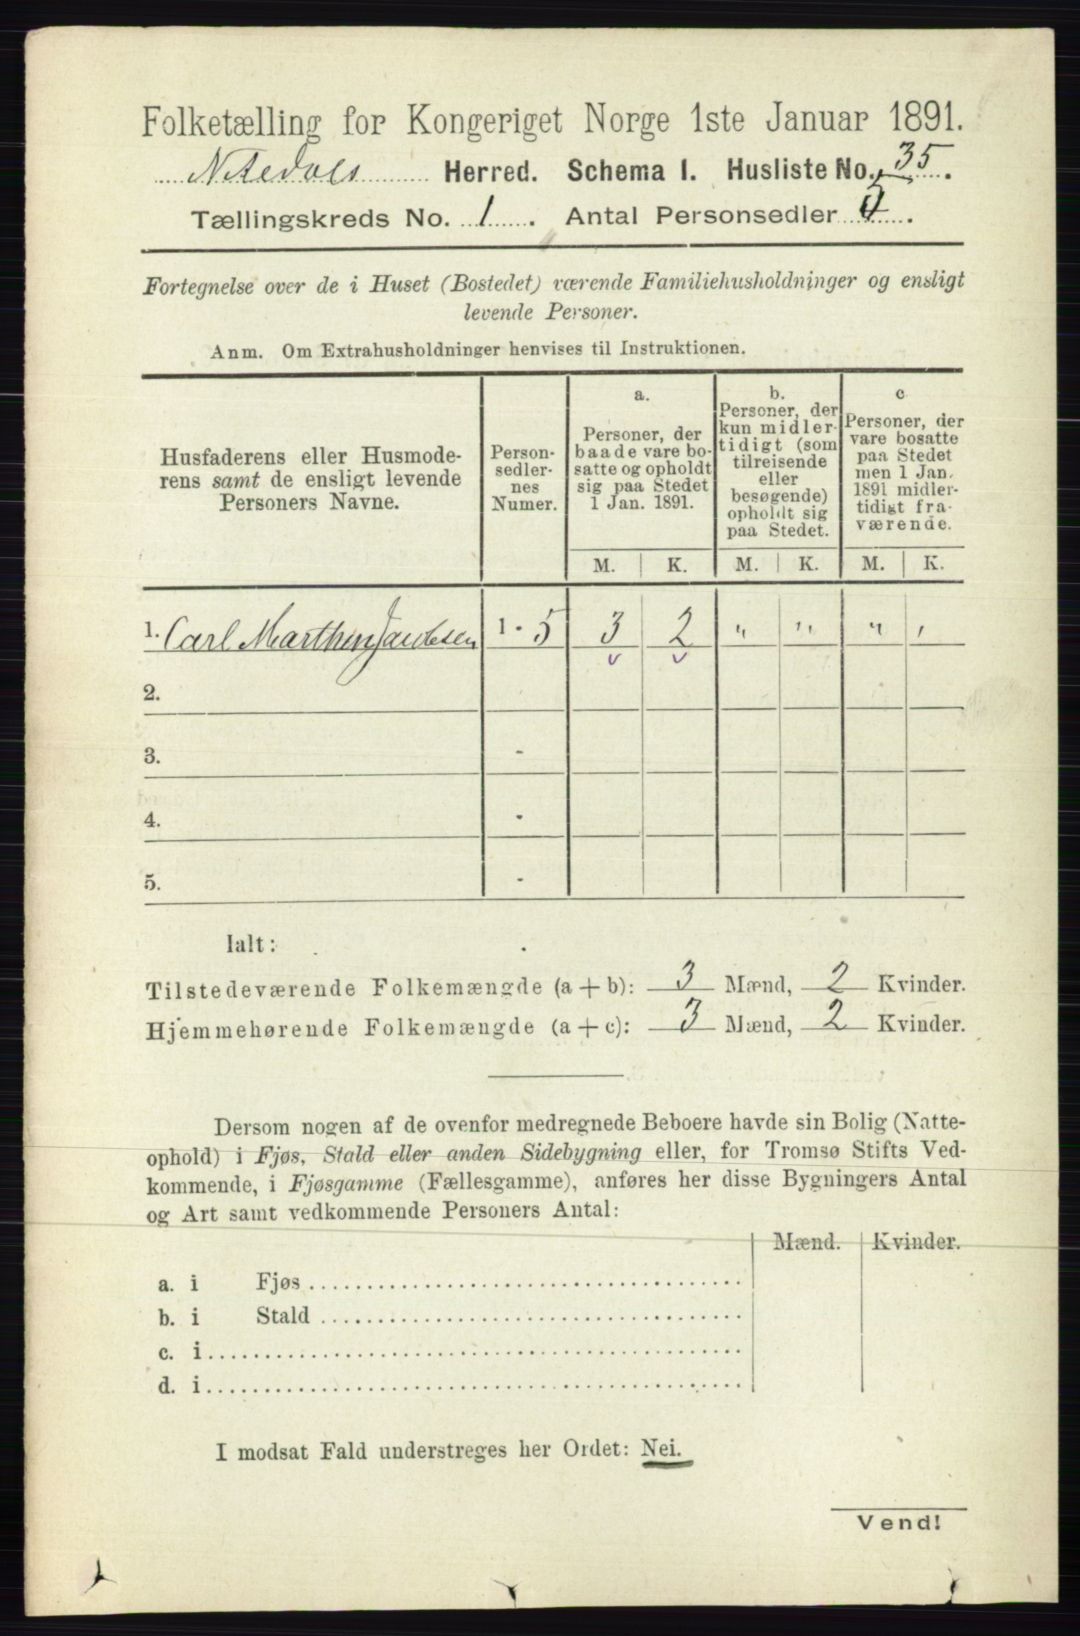 Folketælling for Kongeriget Norge 1ste Januar 1891.
Nitedals Herred. Schema I. Husliste No. 35.
Tællingskreds No. 1. Antal Personsedler 5.
Fortegnelse over de i Huset (Bostedet) værende Familiehusholdninger og ensligt
levende Personer.
Anm. Om Extrahusholdninger henvises til Instruktionen.
Husfaderens eller Husmode-
rens samt de ensligt levende
Personers Navne.
Person-
sedler-
nes
Numer.
a.
Personer, der
baade vare bo-
satte og opholdt
sig paa Stedet
1 Jan. 1891.
b.
Personer, der
kun midler-
tidigt (som
tilreisende
eller
besøgende)
opholdt sig
paa Stedet.
c
Personer, der
vare bosatte
paa Stedet
men 1 Jan.
1891 midler-
tidigt fra-
værende.
M. K. M. K. M. K.
1. Carl Marthin Jacobsen 1 - 5 3 2 " " " "
2.
3. -
4. -
5. -
Ialt:
Tilstedeværende Folkemængde (a + b): 3 Mænd, 2 Kvinder.
Hjemmehørende Folkemængde (a + c): 3 Mænd, 2 Kvinder.
Dersom nogen af de ovenfor medregnede Beboere havde sin Bolig (Natte-
ophold) i Fjøs, Stald eller anden Sidebygning eller, for Tromsø Stifts Ved-
kommende, i Fjøsgamme (Fællesgamme), anføres her disse Bygningers Antal
og Art samt vedkommende Personers Antal:
Mænd. Kvinder.
a. i Fjøs
b. i Stald
c. i
d. i
I modsat Fald understreges her Ordet: Nei.
Vend!